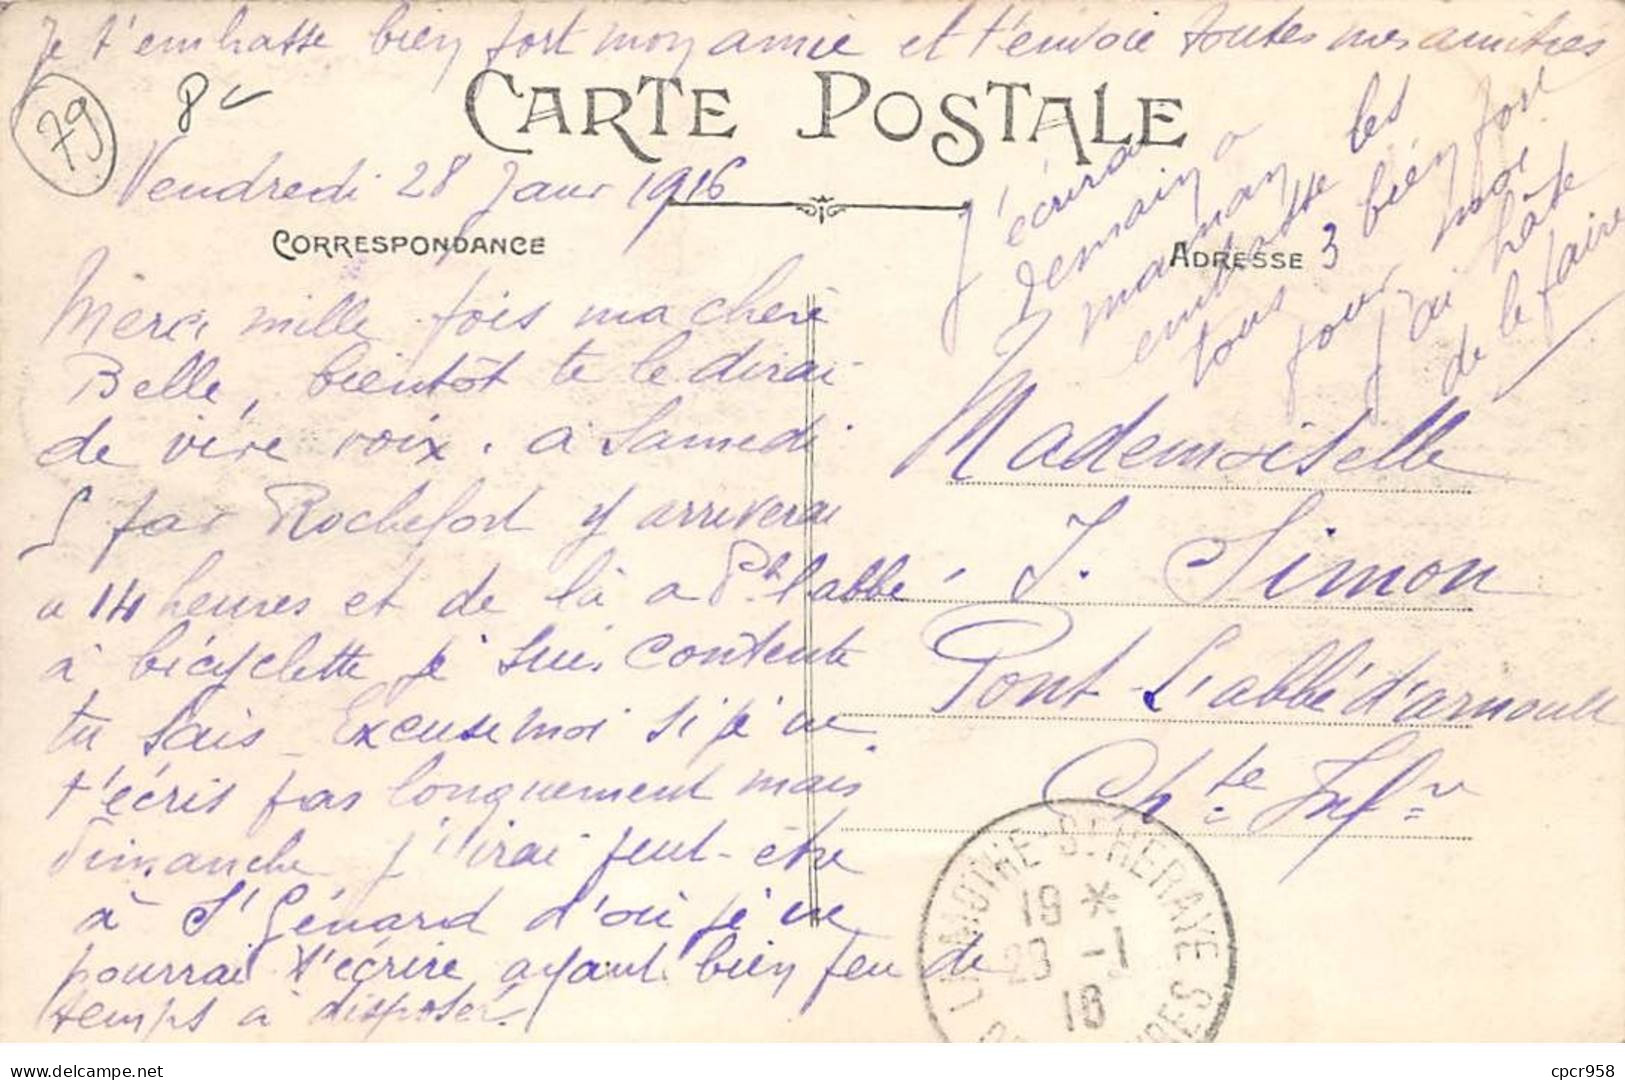 Je t'embrasse bien fort mon amie et t'envoie toutes mes amitiés
79
CARTE POSTALE
Vendredi 28 Janv 1916
CORRESPONDANCE
Merci mille fois ma chère
Belle, bientôt te le dirai
de vive voix. à Samedi
par Rochefort y arriverai
a 14 heures et de là a Pt l'abbé
à bicyclette je suis contente
tu sais _ Excuse moi si je ne
t'écris pas longuement mais
Dimanche j'irai peut-être
à St Génard d'où je ne
pourrai t'écrire ayant bien peu de
temps à disposer.
J'écrirai
demain a
maman
embrasse les
tous 3 bien fort
pour moi
j'ai hâte
de le faire
ADRESSE
Mademoiselle
J. Simon
Pont-L'abbé d'arnoult
Ch.te Infre
LAMOTHE-ST HERAYE
19 *
29 -1
16
SEVRES
cpcr958